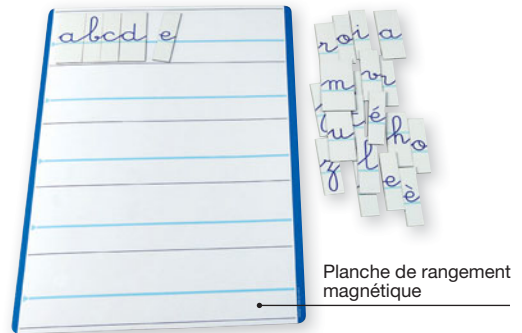 a b c d e
r o i a
m vr
u é h o
z l e è
Planche de rangement
magnétique